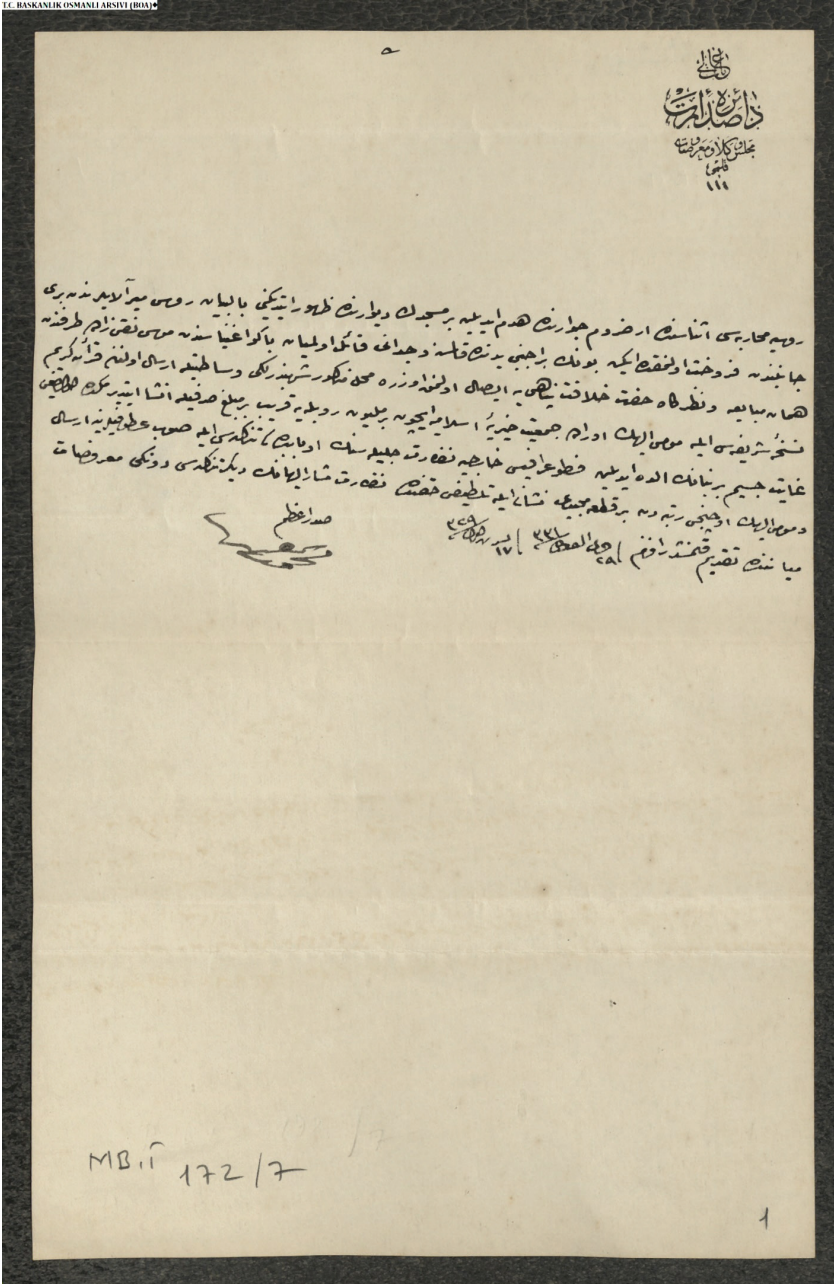 T.C. BAŞKANLIK OSMANLI ARŞİVİ (BOA)
باب عالی
دائره صدارت
مجلس وكلا و معروضات
قلمی
١١١
روسیه محاربه‌سی اثناسنده ارضروم جوارنده هدم ایدیلن بر مسجدك دیوارنده ظهور ایتدیكنی بالبیان روس میرآلایلرندن بری
جانبندن فروخت اولنمقده ایكن بونك بر اجنبی یدنده قالمسنه وجدانی قائل اولمیان باكو اغنیاسندن موسی نقی زاده طرفندن
همان مبایعه و نظرگاه حضرت خلافتپناهی‌یه ایصال اولنمق اوزره محل مذكور شهبندرلكی وساطتیله ارسال اولنان قرآن كریم
نسخه شریفه‌سی ایله مومی الیهك اوراده جمعیت خیریه اسلامیه ایچون بر ملیون روبله‌یه قریب بر مبلغ صرفیله انشا ایتدیرمكده اولدیغی
غایت جسیم بر بنانك الده ایدیلن فطوغرافیسی خارجیه نظارت جلیله‌سنك اوبابده‌كی تذكره‌سی ایله صوب عطوفیلرینه ارسال
و مومی الیهك اوچنجی رتبه‌دن بر قطعه مجیدی نشانی ایله تلطیفی حقنده نظارت مشار الیهانك دیگر تذكره‌سی دونكی معروضات
میاننده تقدیم قلنمشدر افندم ٢٩ ٣٣١ ١٧ ٣٢٩
صدر اعظم
MB.İ 172/7
1